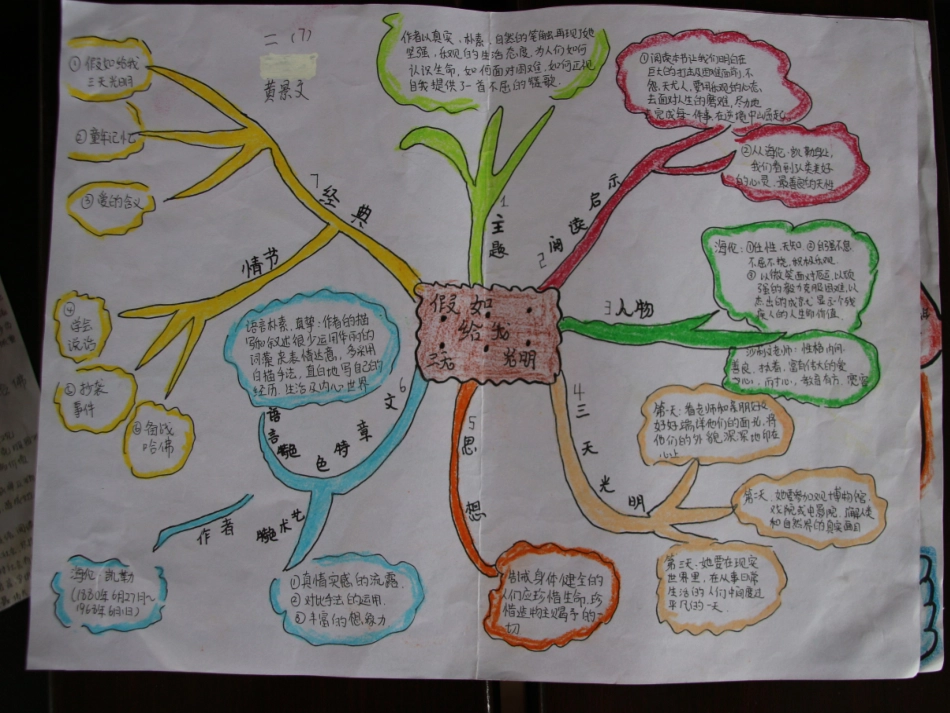 二 (7)
黄景文
假如
给我
三天 光明
1 主题
作者以真实、朴素、自然的笔触再现了她
坚强、乐观的生活态度,为人们如何
认识生命,如何面对困难,如何正视
自我提供了一首不屈的赞歌。
2 阅读启示
①阅读本书让我们明白在
巨大的打击及困难面前,不
怨天尤人,要用乐观的心态,
去面对人生的磨难,尽力地
去完成每一件事,在逆境中
②从海伦·凯勒身上,
我们看到人类美好
的心灵、最善良的天性
3 人物
海伦:①任性、无知 ②自强不息
不屈不挠、积极乐观.
③以微笑面对厄运,以顽
强的毅力克服困难,以
杰出的成就显示个残
疾人的人生的价值.
沙利文老师:性格内向
善良、执着,富有伟大的爱
心,而才心,教育有方、宽容
4 三天光明
第一天:看老师和亲朋好友
好好端详他们的面龙,将
他们的外貌,深深地印在
心上
第二天:她要参加观博物馆
戏院或电影院,了解人类
和自然界的真实面目
第三天:她要在现实
世界里,在从事日常
生活的人们中间度过
平凡的一天.
5 思想
告诫身体健全的
人们应珍惜生命,珍
惜造物主赐予的一
切
6 文章特色
语言
语言朴素、真挚:作者的描
写和叙述很少运用华丽的
词藻来表情达意,多采用
白描手法,直白地写自己的
经历、生活及内心世界
艺术
①真情实感的流露.
②对比手法的运用.
③丰富的想象力
作者
海伦·凯勒
(1880年6月27日~
1968年6月1日)
7 经典
①假如给我
三天光明
②童年记忆
③爱的含义
情节
④
学会
说话
⑤抄袭
事件
⑥备战
哈佛